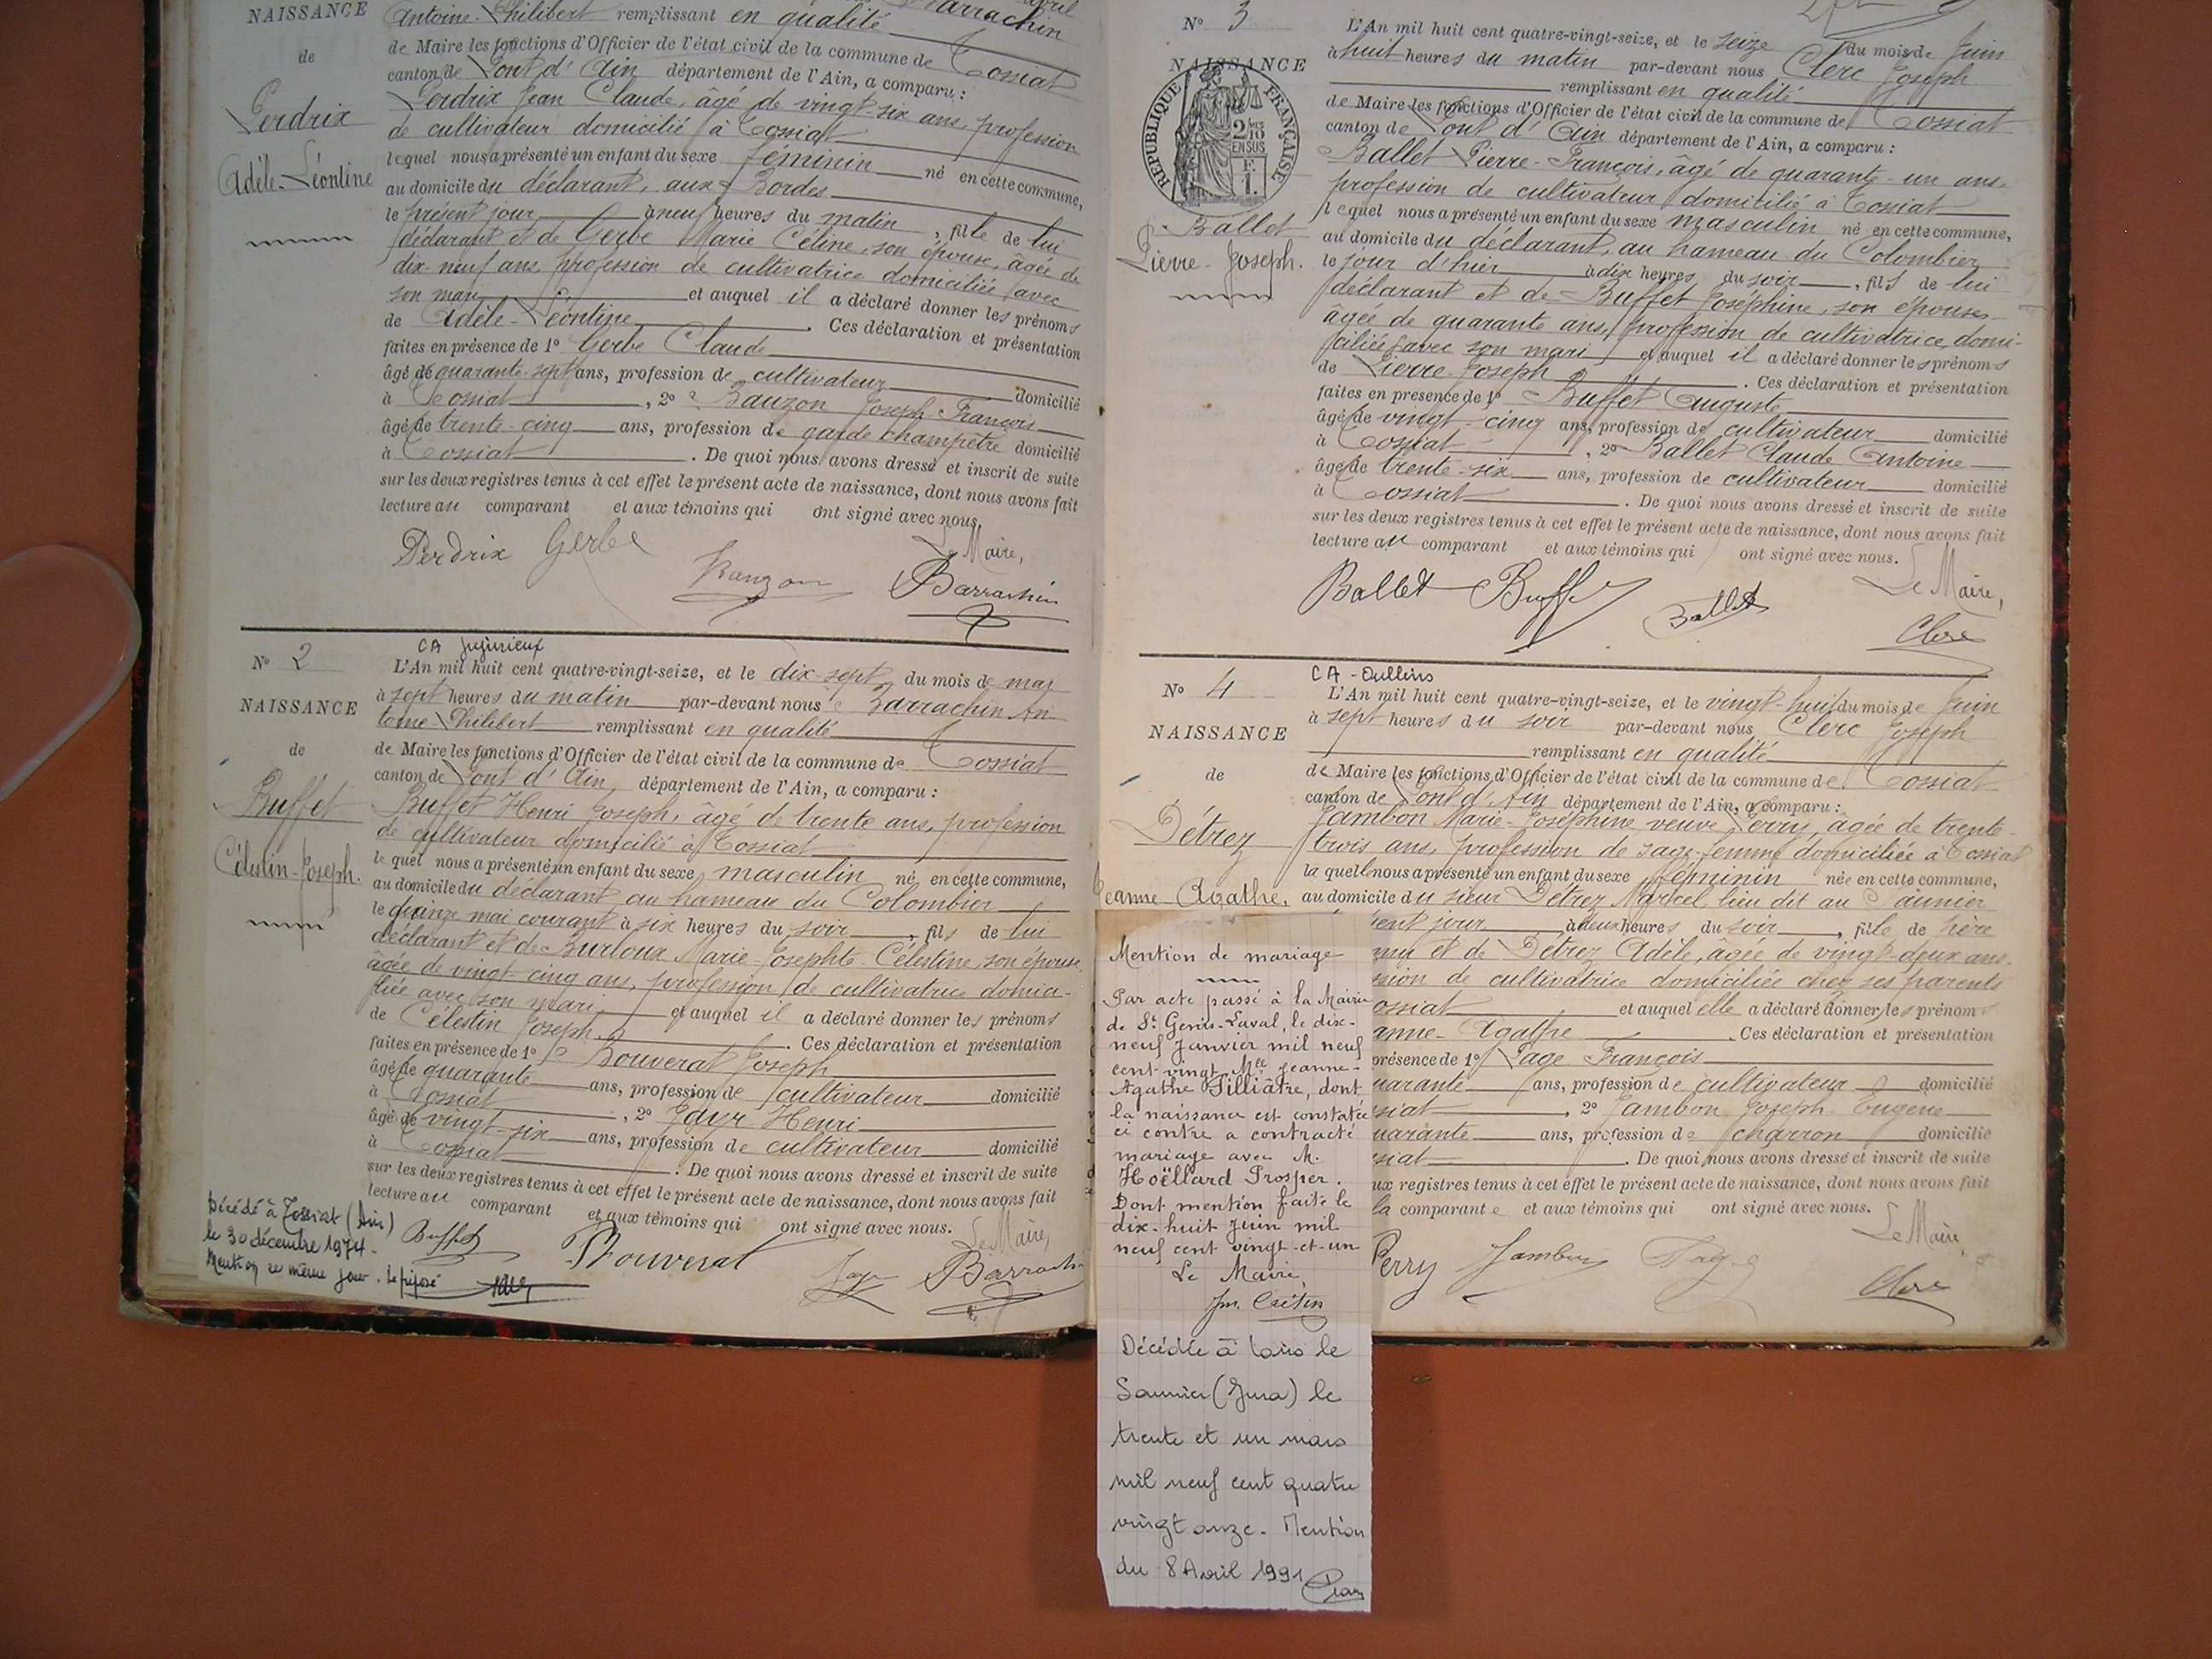 NAISSANCE
de
Perdrix
Adèle-Léontine
Antoine-Philibert remplissant en qualité
de Maire les fonctions d'Officier de l'état civil de la commune de Tossiat
canton de Pont d'Ain département de l'Ain, a comparu :
Perdrix Jean Claude, âgé de vingt-six ans, profession
de cultivateur domicilié à Tossiat
lequel nous a présenté un enfant du sexe féminin né en cette commune,
au domicile du déclarant, aux Bordes
le présent jour à neuf heures du matin, fille de lui
déclarant et de Gerbe Marie Céline, son épouse, âgée de
dix-neuf ans, profession de cultivatrice domiciliée avec
son mari et auquel il a déclaré donner les prénoms
de Adèle-Léontine. Ces déclaration et présentation
faites en présence de 1º Gerbe Claude
âgé de quarante-sept ans, profession de cultivateur domicilié
à Tossiat, 2º Bauzon Joseph-François
âgé de trente-cinq ans, profession de garde champêtre domicilié
à Tossiat. De quoi nous avons dressé et inscrit de suite
sur les deux registres tenus à cet effet le présent acte de naissance, dont nous avons fait
lecture au comparant et aux témoins qui ont signé avec nous.
Le Maire,
Perdrix Gerbe Bauzon Barrachin
CA Jujurieux
Nº 2
NAISSANCE
de
Buffet
Célestin-Joseph.
L'An mil huit cent quatre-vingt-seize, et le dix-sept du mois de mai
à sept heures du matin par-devant nous Barrachin An
toine Philibert remplissant en qualité
de Maire les fonctions d'Officier de l'état civil de la commune de Tossiat
canton de Pont d'Ain, département de l'Ain, a comparu :
Buffet Henri Joseph, âgé de trente ans, profession
de cultivateur domicilié à Tossiat
le quel nous a présenté un enfant du sexe masculin né en cette commune,
au domicile du déclarant, au hameau du Colombier
le quinze mai courant à six heures du soir, fils de lui
déclarant et de Burloux Marie-Josephte-Célestine, son épouse,
âgée de vingt-cinq ans, profession de cultivatrice domici-
liée avec son mari et auquel il a déclaré donner les prénoms
de Célestin Joseph. Ces déclaration et présentation
faites en présence de 1º Bouverat Joseph
âgé de quarante ans, profession de cultivateur domicilié
à Tossiat, 2º Jayr Henri
âgé de vingt-six ans, profession de cultivateur domicilié
à Tossiat. De quoi nous avons dressé et inscrit de suite
sur les deux registres tenus à cet effet le présent acte de naissance, dont nous avons fait
lecture au comparant et aux témoins qui ont signé avec nous.
Le Maire,
Buffet Bouverat Jayr Barrachin
Décédé à Tossiat (Ain)
le 30 décembre 1974.
Mention ce même jour. Le préposé
Nº 3
NAISSANCE
RÉPUBLIQUE FRANÇAISE
2/10 EN SUS
F. 1.
Ballet
Pierre-Joseph.
L'An mil huit cent quatre-vingt-seize, et le seize du mois de Juin
à huit heures du matin par-devant nous Clerc Joseph
remplissant en qualité
de Maire les fonctions d'Officier de l'état civil de la commune de Tossiat
canton de Pont d'Ain département de l'Ain, a comparu :
Ballet Pierre-François, âgé de quarante-un ans,
profession de cultivateur domicilié à Tossiat
lequel nous a présenté un enfant du sexe masculin né en cette commune,
au domicile du déclarant, au hameau du Colombier
le jour d'hier à dix heures du soir, fils de lui
déclarant et de Buffet Joséphine, son épouse,
âgée de quarante ans, profession de cultivatrice, domi-
ciliée avec son mari et auquel il a déclaré donner les prénoms
de Pierre-Joseph. Ces déclaration et présentation
faites en présence de 1º Buffet Auguste
âgé de vingt-cinq ans, profession de cultivateur domicilié
à Tossiat, 2º Ballet Claude Antoine
âgé de trente-six ans, profession de cultivateur domicilié
à Tossiat. De quoi nous avons dressé et inscrit de suite
sur les deux registres tenus à cet effet le présent acte de naissance, dont nous avons fait
lecture au comparant et aux témoins qui ont signé avec nous.
Le Maire,
Ballet Buffet Ballet Clerc
CA - Oullins
Nº 4
NAISSANCE
de
Détrez
Jeanne-Agathe,
L'An mil huit cent quatre-vingt-seize, et le vingt-huit du mois de Juin
à sept heures du soir par-devant nous Clerc Joseph
remplissant en qualité
de Maire les fonctions d'Officier de l'état civil de la commune de Tossiat
canton de Pont d'Ain département de l'Ain, a comparu :
Jambon Marie-Joséphine veuve Perry, âgée de trente-
trois ans, profession de sage-femme domiciliée à Tossiat
la quelle nous a présenté un enfant du sexe féminin née en cette commune,
au domicile du sieur Détrez Marcel, lieu dit au Saunier
ent jour à deux heures du soir, fille de père
nnu et de Détrez Adèle, âgée de vingt-deux ans,
sion de cultivatrice domiciliée chez ses parents
ossiat et auquel elle a déclaré donner les prénoms
anne-Agathe. Ces déclaration et présentation
présence de 1º Page François
uarante ans, profession de cultivateur domicilié
siat, 2º Jambon Joseph-Eugène
uarante ans, profession de charron domicilié
siat. De quoi nous avons dressé et inscrit de suite
ux registres tenus à cet effet le présent acte de naissance, dont nous avons fait
la comparante et aux témoins qui ont signé avec nous.
Le Maire,
Perry Jambon Page Clerc
Mention de mariage
Par acte passé à la Mairie
de St Genis-Laval, le dix-
neuf Janvier mil neuf
cent-vingt, Mlle Jeanne-
Agathe Pilliâtre, dont
la naissance est constatée
ci contre a contracté
mariage avec M.
Hoëllard Prosper.
Dont mention faite le
dix-huit Juin mil
neuf cent vingt-et-un
Le Maire,
Jm. Crétin
Décédée à Lons le
Saunier (Jura) le
trente et un mars
mil neuf cent quatre
vingt onze. Mention
du 8 Avril 1991